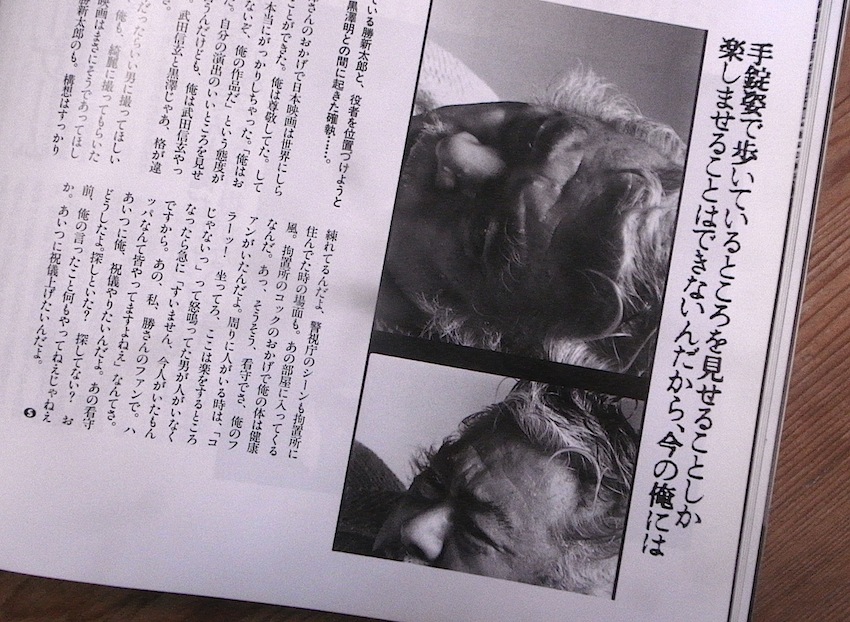 手錠姿で歩いているところを見せることしか
楽しませることはできないんだから、今の俺には
いる勝新太郎と、役者を位置づけようと
黒澤明との間に起きた確執……。
さんのおかげで日本映画は世界にしら
ことができた。俺は尊敬してた。して
本当にがっかりしちゃった。「俺はお
ないぞ、俺の作品だ」という態度が
。自分の演出のいいところを見せ
うんだけども、俺は武田信玄やっ
。武田信玄と黒澤じゃあ、格が違
さ。
だったらいい男に撮ってほしい
俺も、綺麗に撮ってもらいた
映画はまさにそうであってほし
勝新太郎のも。構想はすっかり
練れてるんだよ、警視庁のシーンも拘置所に
住んでた時の場面も。あの部屋に入ってくる
風。拘置所のコックのおかげで俺の体は健康
なんだ。あっ、そうそう、看守でさ、俺のフ
ァンがいたんだよ。周りに人がいる時は、「コ
ラーッ！　坐ってろ、ここは楽をするところ
じゃないっ」って怒鳴ってた男が人がいなく
なったら急に「すいません。今人がいたもん
ですから。あの、私、勝さんのファンで。ハ
ッパなんて皆やってますよねえ」なんてさ。
あいつに俺、祝儀やりたいんだよ。あの看守
どうしたよ。探しといた？　探してない？　お
前、俺の言ったこと何もやってねえじゃねえ
か。あいつに祝儀上げたいんだよ。